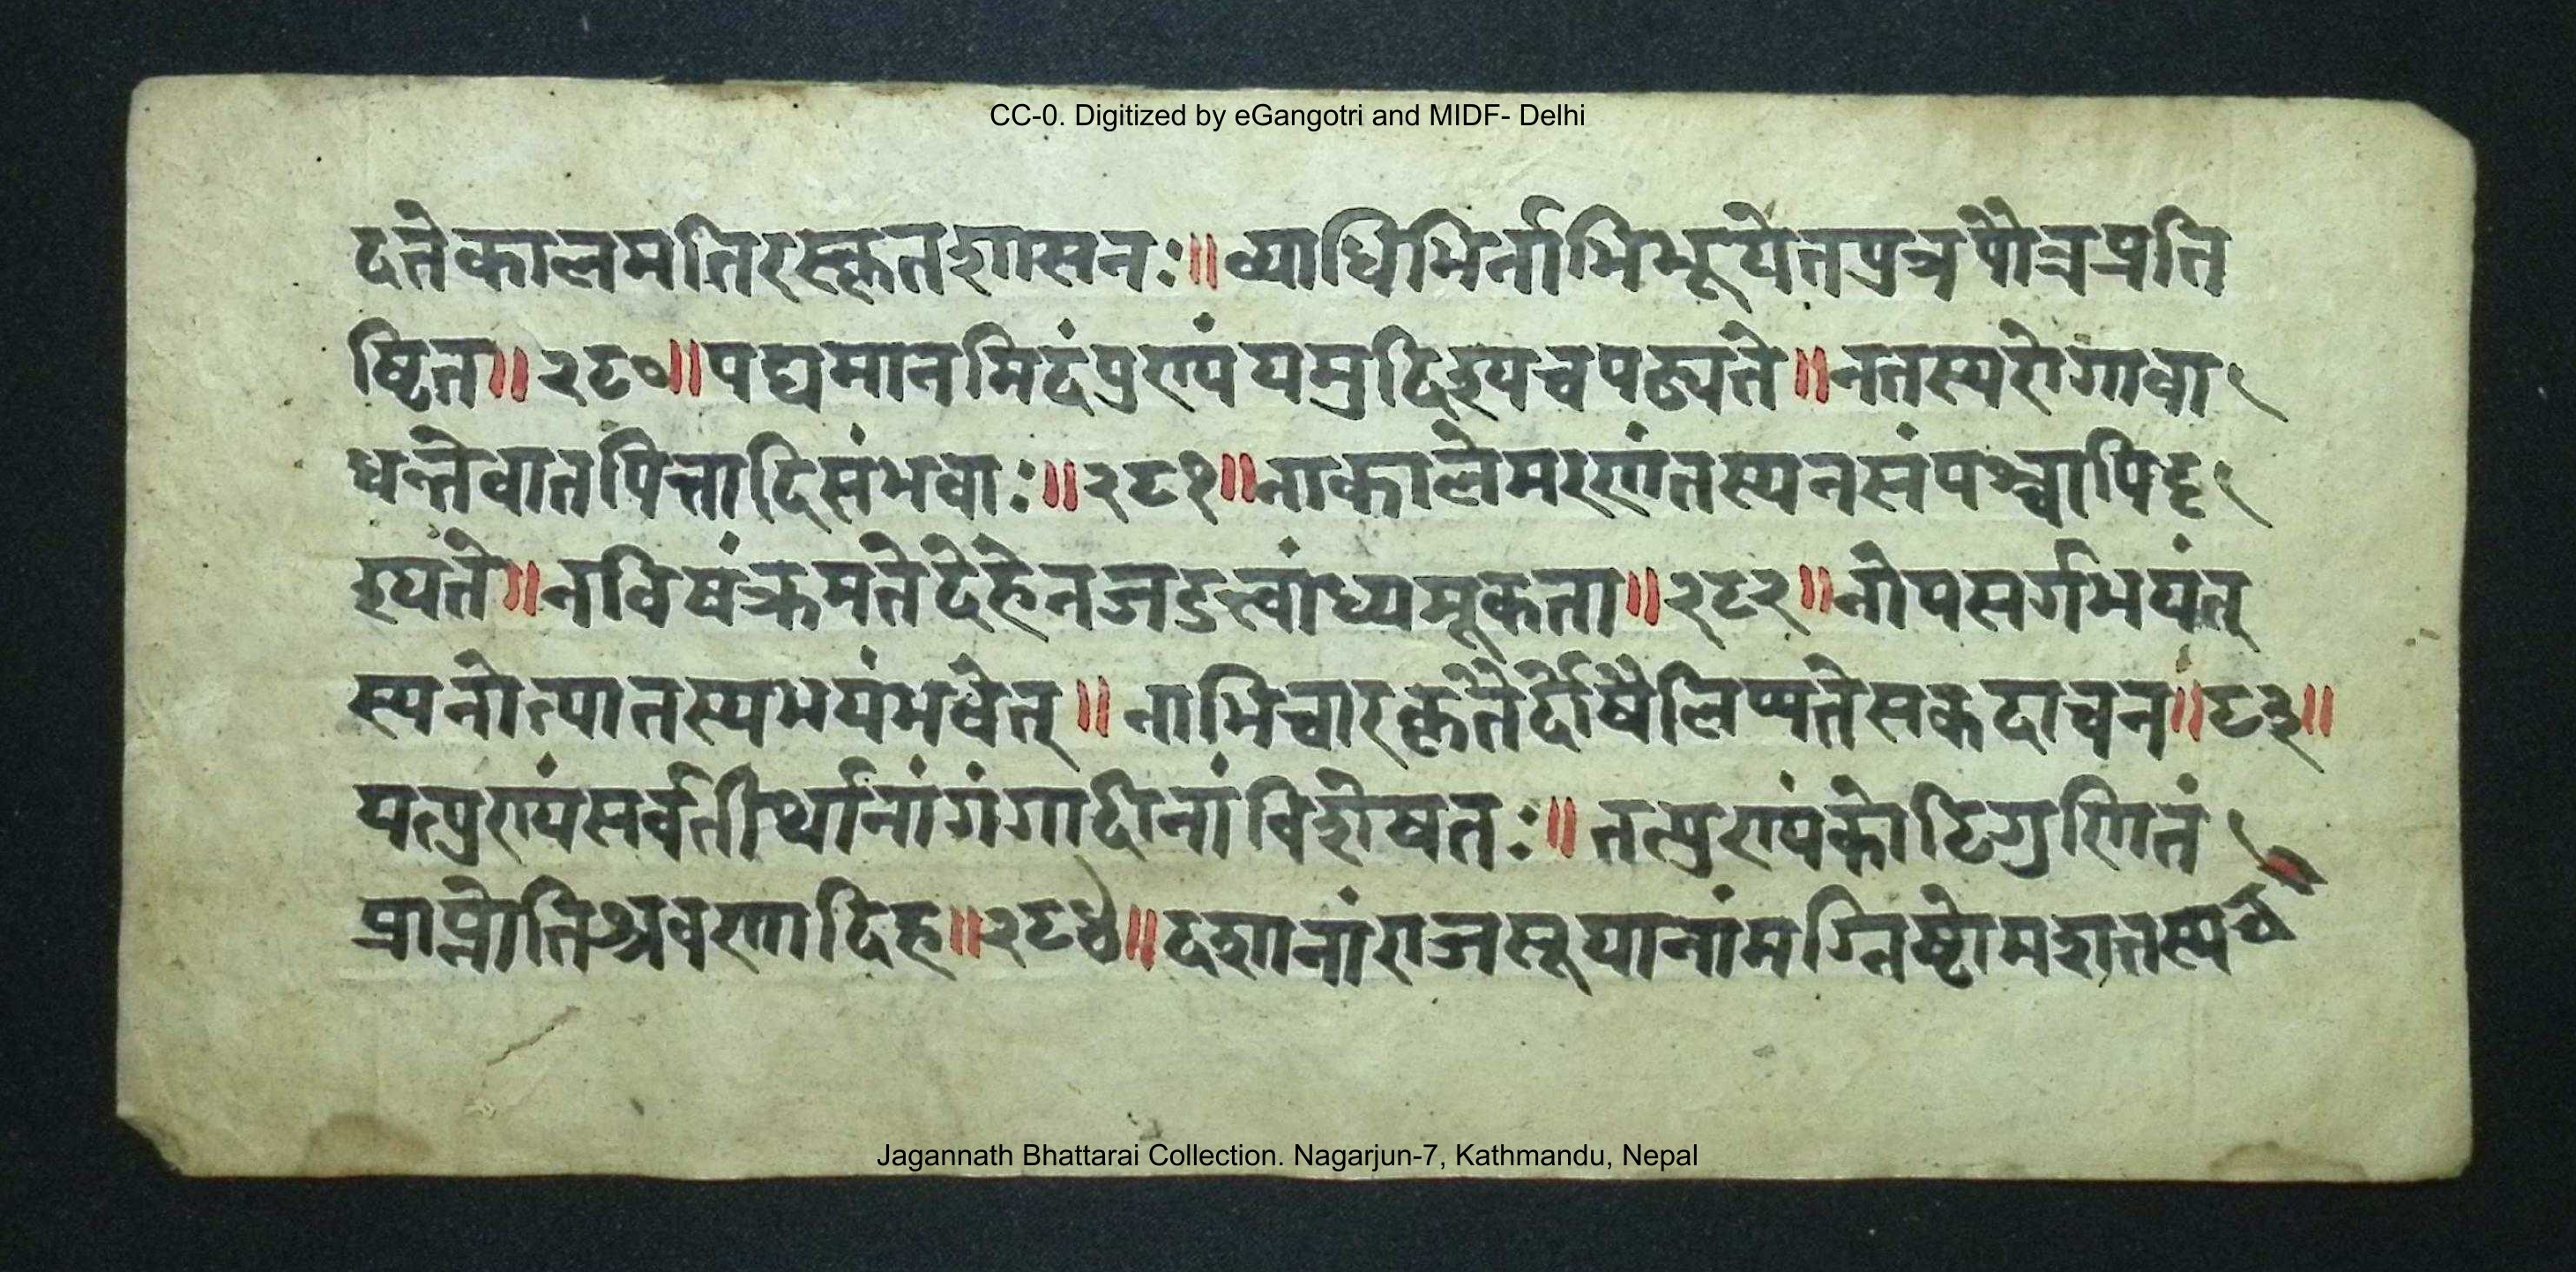 CC-0. Digitized by eGangotri and MIDF- Delhi
दतेकालमतिरस्कृतशासनः॥व्याधिभिर्नाभिभूयेतपुत्रपौत्रप्रति
ष्ठित॥२८०॥पद्यमानमिदंपुण्यंयमुदिश्यचपठ्यते॥नतस्यरोगावा
धन्तेवातपित्तादिसंभवाः॥२८१॥नाकालेमरणंतस्यनसंपश्चापिदृ
श्यते॥नविषंक्रमतेदेहेनजडत्वांध्यमूकता॥२८२॥नोपसर्गभयंत्
स्यनोत्पातस्यभयंभवेत्॥नाभिचारकृतैर्दोषैलिप्यतेसकदाचन॥८३॥
यत्पुण्यंसर्वतीर्थानांगंगादीनांविशेषतः॥तत्पुण्यंकोटिगुणितं
प्राप्नोतिश्रवणादिह॥२८४॥दशानांराजसूयानांमग्निष्टोमशतस्यच
Jagannath Bhattarai Collection. Nagarjun-7, Kathmandu, Nepal